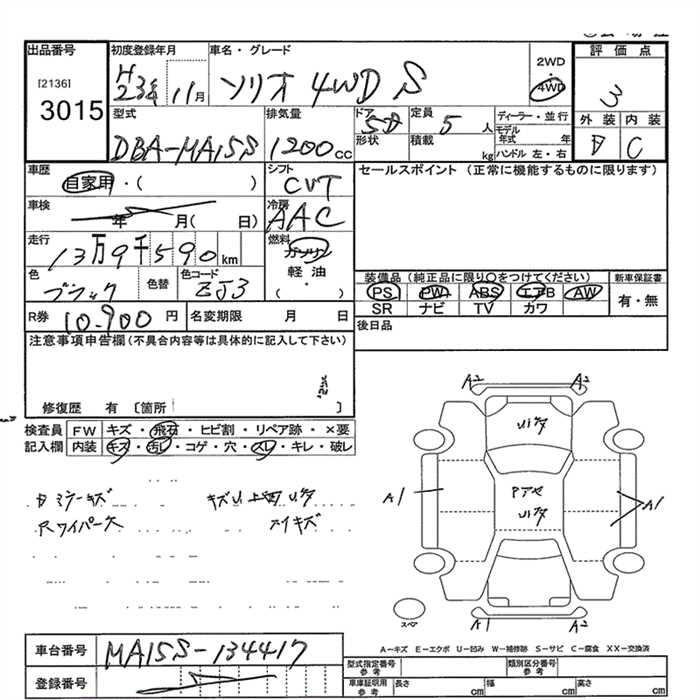 出品番号
[2136]
3015
初度登録年月
H
23年 11月
車名・グレード
ソリオ 4WD S
2WD
・
4WD
評価点
3
外装 内装
D C
型式
DBA-MA15S
排気量
1200cc
ドア
5D
形状
定員
5人
積載
kg
ディーラー・並行
モデル年式 年
ハンドル 左・右
車歴
自家用・( )
シフト
CVT
セールスポイント(正常に機能するものに限ります)
車検
年 月( 日)
冷房
AAC
走行
13万9千590km
燃料
ガソリン
軽油
( ・ )
色
ブラック
色替
色コード
ZJ3
装備品(純正品に限り○をつけてください)
PS PW ABS エアB AW
SR ナビ TV カワ
新車保証書
有・無
R券
10,900円
名変期限 月 日
後日品
注意事項申告欄(不具合内容等は具体的に記入して下さい)
修復歴 有〔箇所 〕
検査員 FW キズ・飛石・ヒビ割・リペア跡・×要
記入欄 内装 キズ・汚レ・コゲ・穴・スレ・キレ・破レ
ミラーキズ
Rワイパー欠
A2 A2
A1 A1
A1 A2
スペア
A-キズ E-エクボ U-凹み W-補修跡 S-サビ C-腐食 XX-交換済
車台番号
MA15S-134417
登録番号
型式指定番号
参考
類別区分番号
参考
車庫証明用
参考
長さ cm
幅 cm
高さ cm